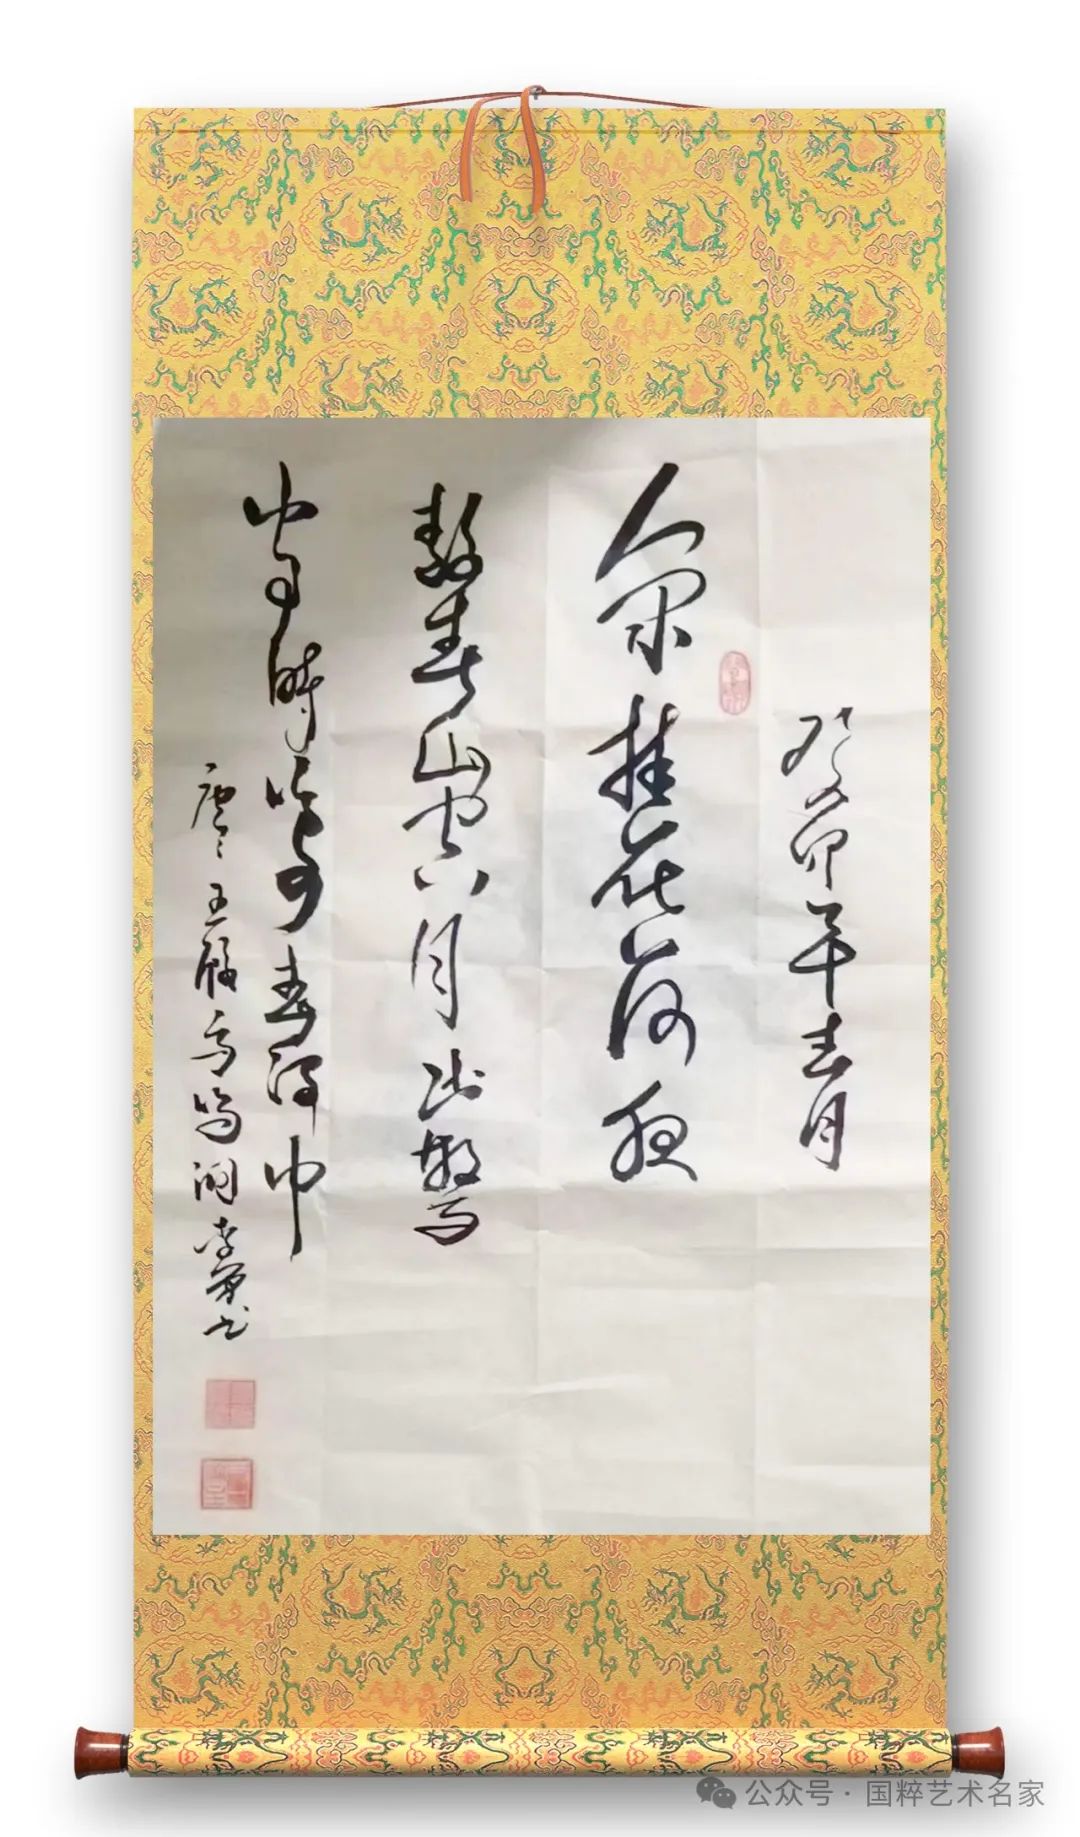 癸卯年春月
人闲桂花落夜
静春山空月出惊
山鸟时鸣春涧中
唐 王维 鸟鸣涧 李
公众号 · 国粹艺术名家